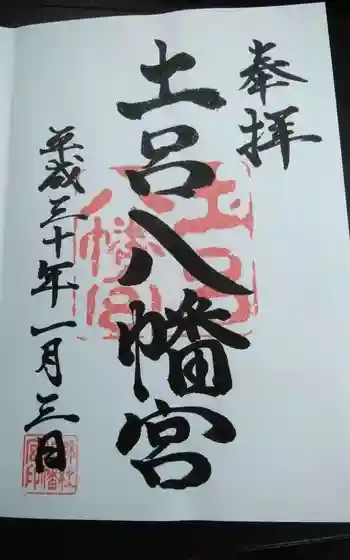 奉拝
土呂八幡宮
平成三十年一月三日
土呂八幡宮